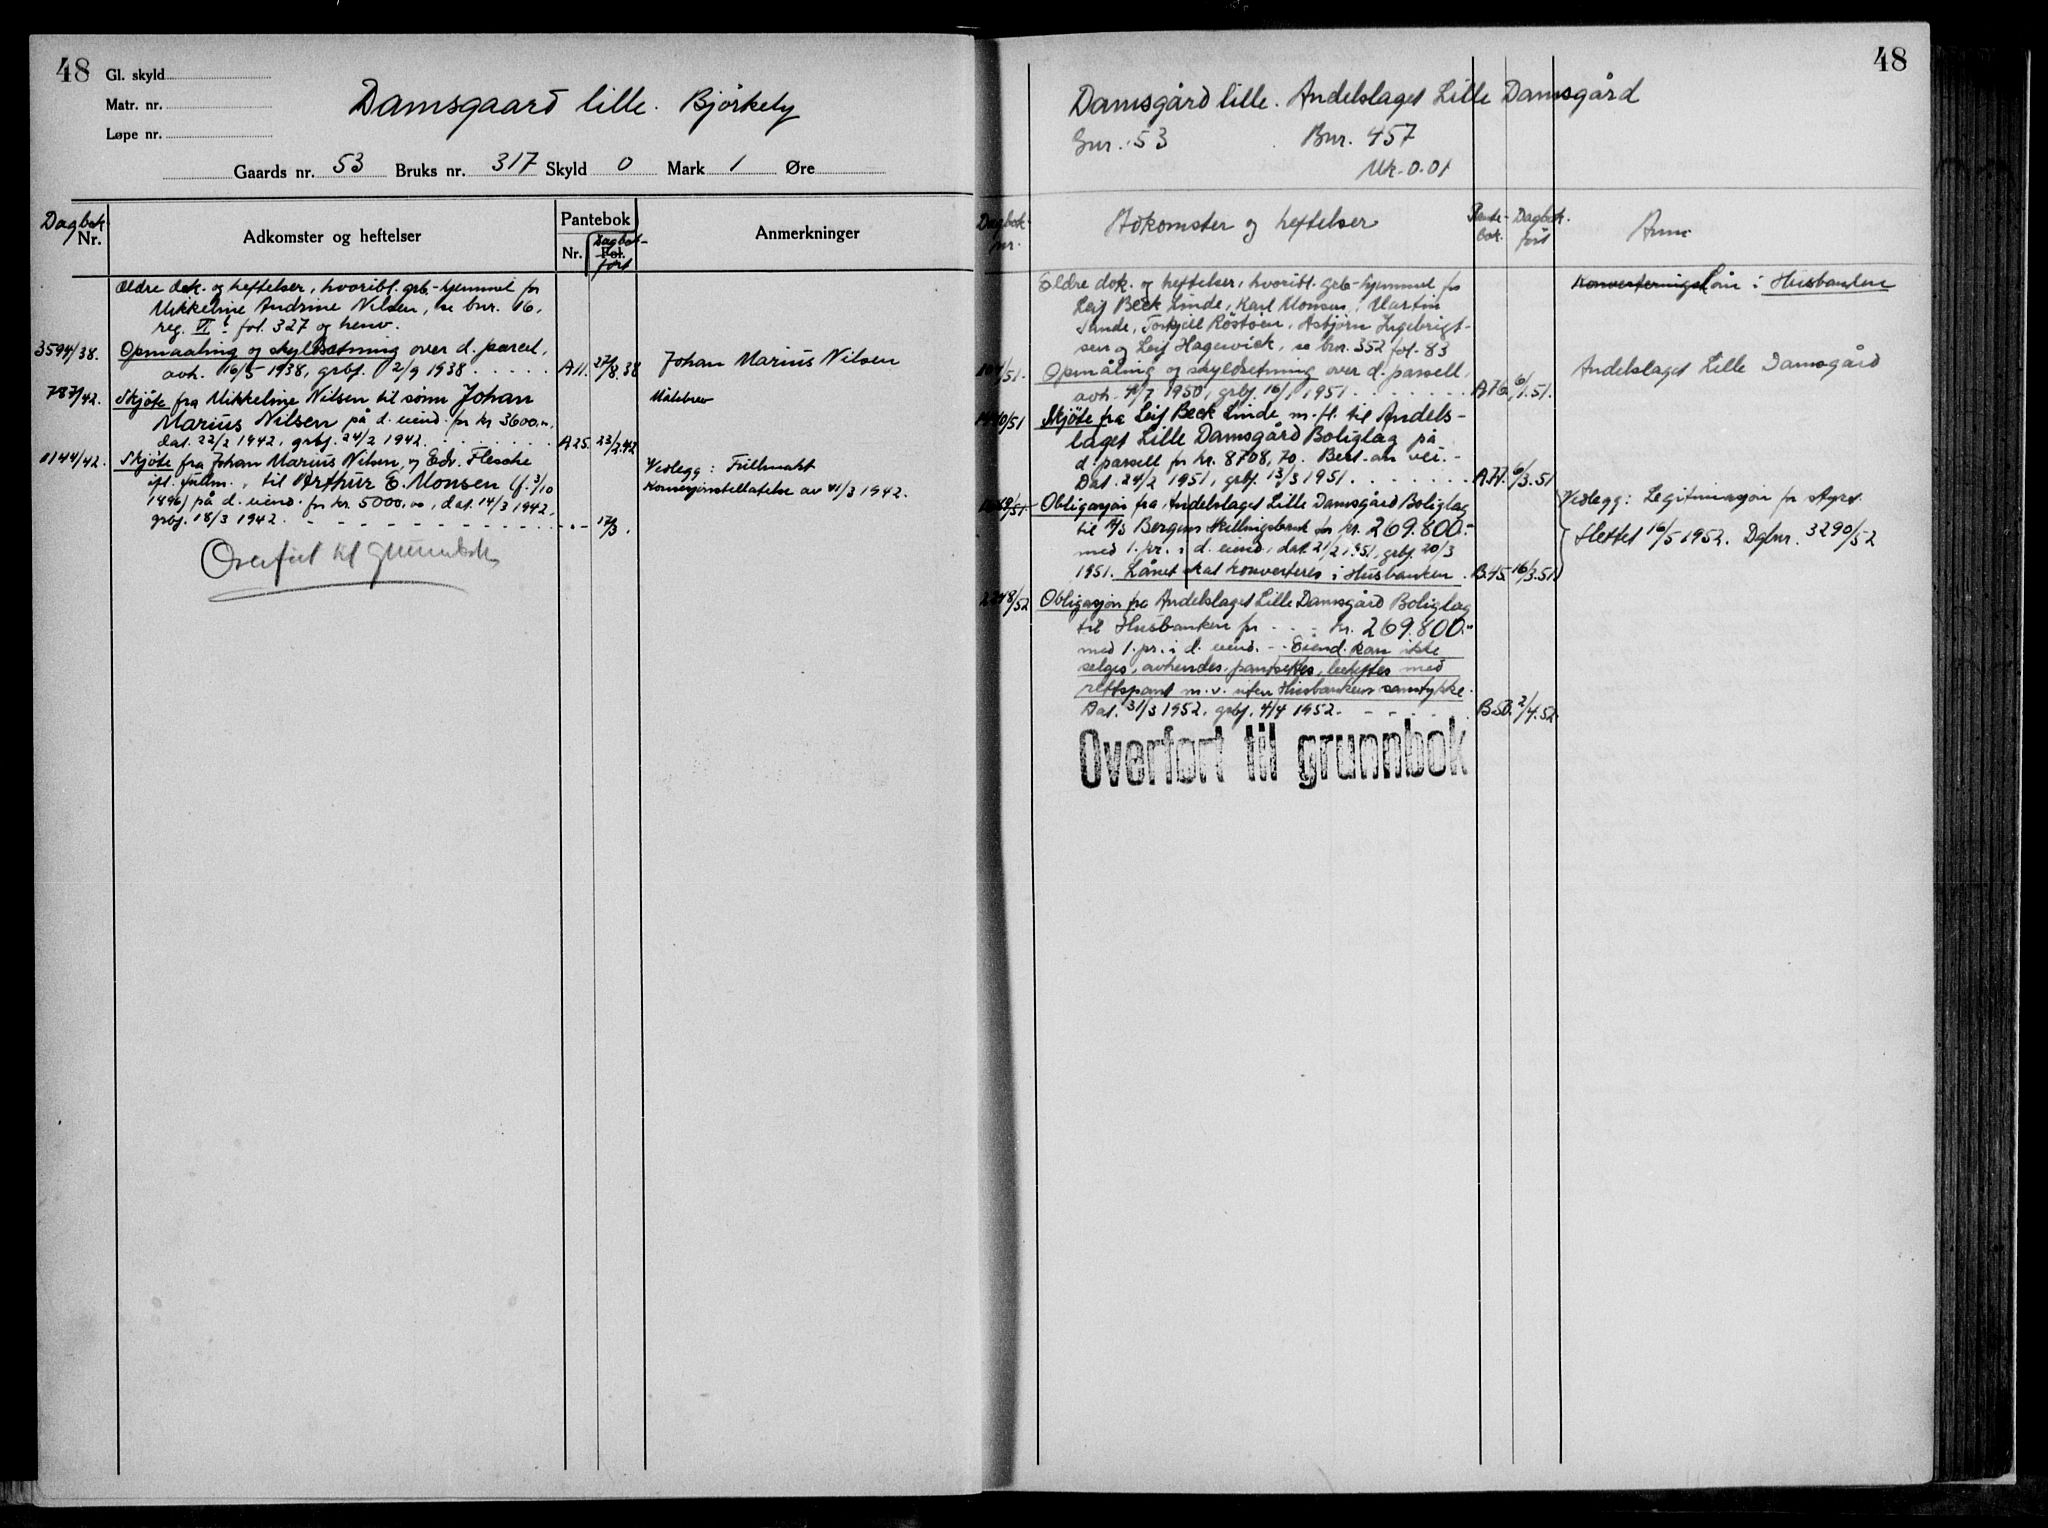 48
Gl. skyld
Matr. nr.
Løpe nr.
Damsgaard lille. Bjørkely
Gaards nr. 53 Bruks nr. 317 Skyld 0 Mark 1 Øre
Dagbok Nr.
Adkomster og heftelser
Pantebok
Nr.
Fol.
Dagbok-ført
Anmerkninger
Ældre dok. og heftelser, hvoribl. grb.-hjemmel for
Mikkeline Andrine Nilsen, se bnr. 16,
reg. VI b fol. 327 og henv.
3594/38. Opmaaling og skyldsætning over d. parcel,
avh. 16/5 1938, grbf. 2/9 1938 . . . . . A11. 27/8.38 Johan Marius Nilsen
787/42. Skjøte fra Mikkeline Nilsen til sønn Johan Målebrev
Marius Nilsen på d. eiend. for kr 3600,00,
dat. 22/2 1942, grbf. 24/2 1942. . . . . A25. 23/2.42
1144/42. Skjøte fra Johan Marius Nilsen, v/ Edv. Flesche Vedlegg: Fullmakt
ifl. fullm., til Arthur E. Monsen (f. 3/10 Konsesjonstillatelse av 11/3 1942.
1896) på d. eiend. for kr 5000,00, dat. 14/3 1942,
grbf. 18/3 1942. - - - - - - 17/3.
Overført til grunnbok
48
Damsgård lille. Andelslaget Lille Damsgård
Gnr. 53 Bnr. 457
Mk. 0.01
Dagbok nr.
Adkomster og heftelser
Pante-bok.
Dagbok-ført
Anm.
Eldre dok. og heftelser, hvoribl. grb-hjemmel for Konverteringslån i Husbanken
Leif Beck Linde, Karl Monsen, Martin
Sande, Torkjell Röstöen, Asbjørn Ingebrigt-
sen og Leif Hagewick, se bnr. 352 fol. 83
104/51. Opmåling og skyldsetning over d. parsell, Andelslaget Lille Damsgård
avh. 4/7 1950, grbf. 16/1 1951. . . . . A76. 6/1.51.
1440/51 Skjöte fra Leif Beck Linde m. fl. til Andels-
laget Lille Damsgård Boliglag på
d. parsell for kr. 8708,70. Best. om vei. -
Dat. 24/2 1951, grbf. 13/3 1951. . . . . A77. 6/3.51
Obligasjon fra Andelslaget Lille Damsgård Boliglag Vedlegg: Legitimasjon for styret.
til A/S Bergens Skillingsbank for kr. 269.800.- Slettet 16/5 1952. Dgbnr. 3290/52
med 1. pr. i d. eiend., dat. 21/2 1951, grbf. 20/3
1951. Lånet skal konverteres i Husbanken. B.45. 16/3.51.
2248/52 Obligasjon fra Andelslaget Lille Damsgård Boliglag
til Husbanken for - - - kr. 269.800.-
med 1. pr. i d. eiend. - Eiend. kan ikke
selges, avhendes, pantsettes, beheftes med
rettspant m. v. uten Husbankens samtykke.
Dat. 31/3 1952, grbf. 4/4 1952. - - - - B50. 2/4.52.
Overført til grunnbok